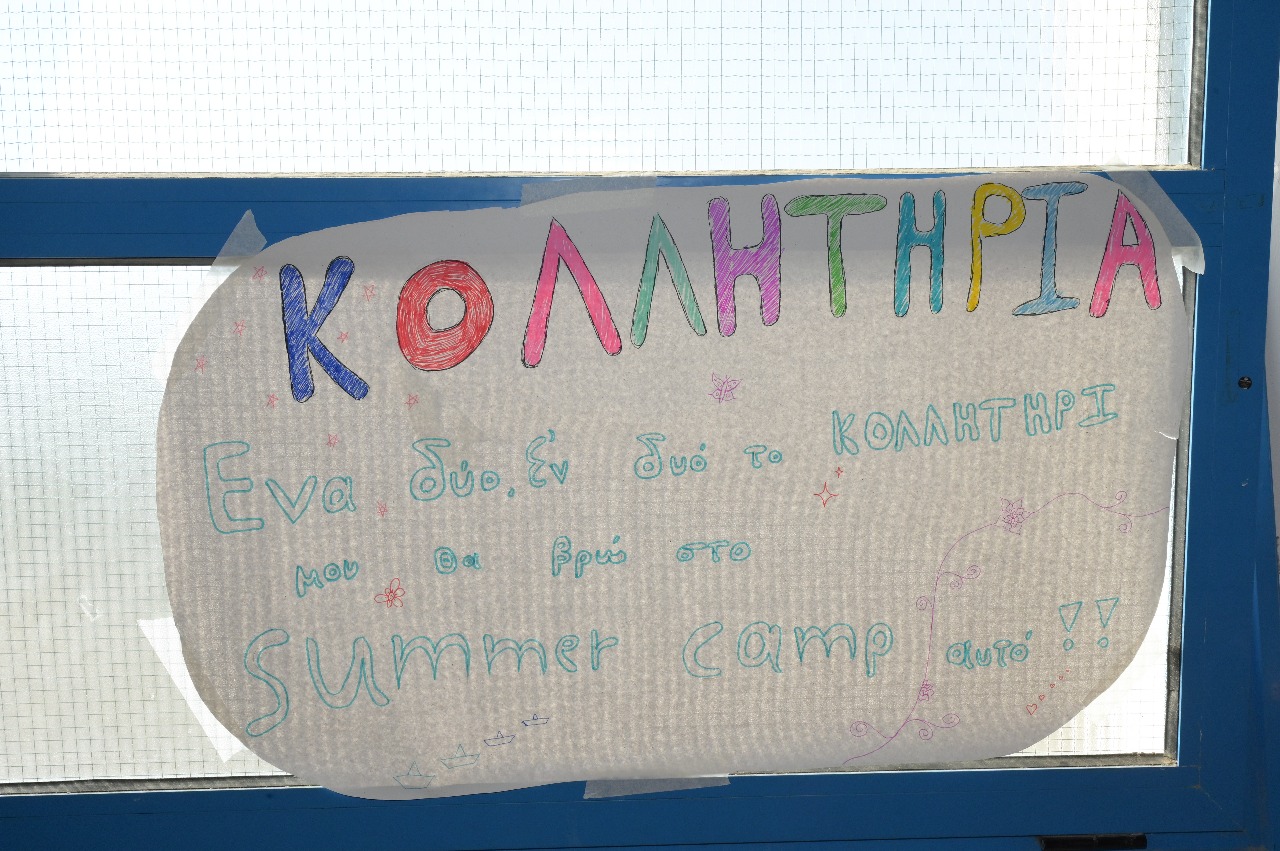 ΚΟΛΛΗΤΗΡΙΑ
Ενα δύο, έν δυό το ΚΟΛΛΗΤΗΡΙ
μου θα βρώ στο
Summer camp αυτό!!